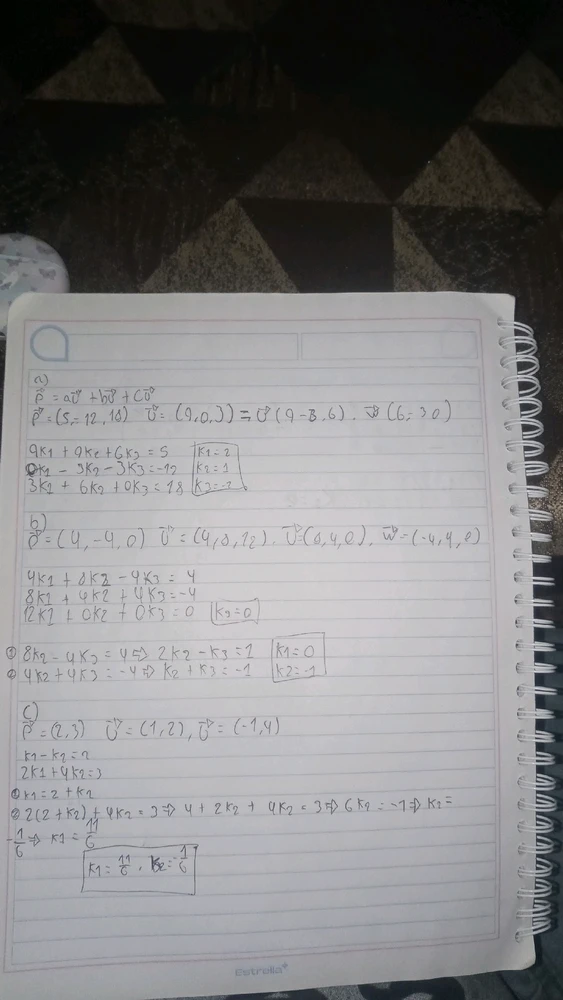 a)
P⃗ = aU⃗ + bU⃗ + cU⃗
P⃗ = (5,-12,18) U⃗ = (9,0,3) = U⃗ (9-8,6). W⃗ (6-30)
9k1 + 9k2 + 6k3 = 5
0k1 - 3k2 - 3k3 = -12
3k1 + 6k2 + 0k3 = 18
k1 = 2
k2 = 1
b)
P⃗ = (4,-4,0) U⃗ = (4,8,12). U⃗ (8,4,0), W⃗ = (-4,4,0)
4k1 + 8k2 - 4k3 = 4
8k1 + 4k2 + 4k3 = -4
12k1 + 0k2 + 0k3 = 0
① 8k2 - 4k3 = 4 ⇒ 2k2 - k3 = 1
② 4k2 + 4k3 = -4 ⇒ k2 + k3 = -1
k1 = 0
k2 = -1
c)
P⃗ = (2,3) U⃗ = (1,2), U⃗ = (-1,4)
k1 - k2 = 2
2k1 + 4k2 = 3
① k1 = 2 + k2
② 2(2 + k2) + 4k2 = 3 ⇒ 4 + 2k2 + 4k2 = 3 ⇒ 6k2 = -1 ⇒ k2 =
-1/6 ⇒ k1 = 11/6
k1 = 11/6 , k2 = -1/6
Estrella